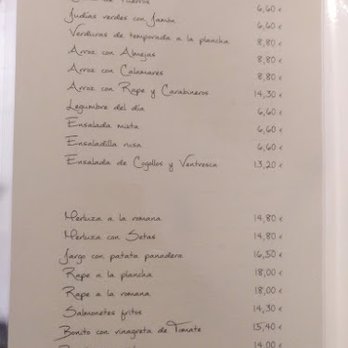 6,60 €
Judías verdes con Jamón 6,60 €
Verduras de temporada a la plancha 8,80 €
Arroz con Almejas 8,80 €
Arroz con Calamares 8,80 €
Arroz con Rape y Carabineros 14,30 €
Legumbre del día 6,60 €
Ensalada mixta 6,60 €
Ensaladilla rusa 6,60 €
Ensalada de Cogollos y Ventresca 13,20 €
Merluza a la romana 14,80 €
Merluza con Setas 14,80 €
Jargo con patata panadera 16,50 €
Rape a la plancha 18,00 €
Rape a la romana 18,00 €
Salmonetes fritos 14,30 €
Bonito con vinagreta de Tomate 15,40 €
14,00 €